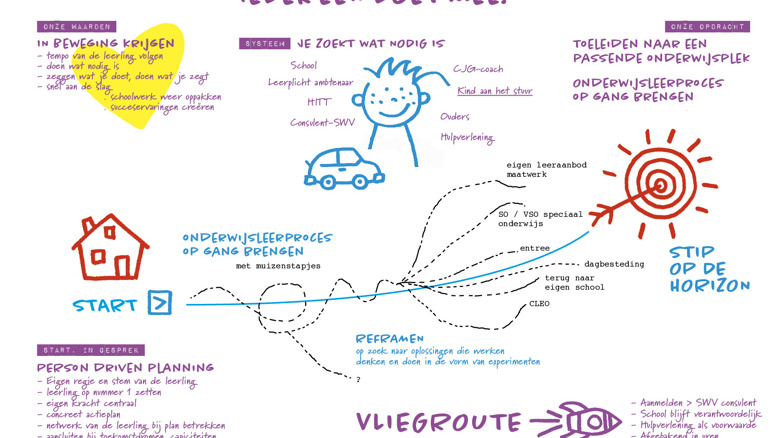 IEDEREEN DOET MEE!
ONZE WAARDEN
IN BEWEGING KRIJGEN
– tempo van de leerling volgen
– doen wat nodig is
– zeggen wat je doet, doen wat je zegt
– snel aan de slag
. schoolwerk weer oppakken
. succeservaringen creëren
SYSTEEM
JE ZOEKT WAT NODIG IS
School
Leerplicht ambtenaar
HITT
Consulent-SWV
CJG-coach
Kind aan het stuur
Ouders
Hulpverlening
ONZE OPDRACHT
TOELEIDEN NAAR EEN
PASSENDE ONDERWIJSPLEK
ONDERWIJSLEERPROCES
OP GANG BRENGEN
ONDERWIJSLEERPROCES
OP GANG BRENGEN
met muizenstapjes
START >
eigen leeraanbod
maatwerk
SO / VSO speciaal
onderwijs
entree
dagbesteding
terug naar
eigen school
CLEO
STIP
OP DE
HORIZON
REFRAMEN
op zoek naar oplossingen die werken
denken en doen in de vorm van experimenten
?
START: IN GESPREK
PERSON DRIVEN PLANNING
– Eigen regie en stem van de leerling
– leerling op nummer 1 zetten
– eigen kracht centraal
– concreet actieplan
– netwerk van de leerling bij plan betrekken
– aansluiten bij toekomstdromen, capiciteiten
VLIEGROUTE
– Aanmelden > SWV consulent
– School blijft verantwoordelijk
– Hulpverlening als voorwaarde
– Afgebakend in uren